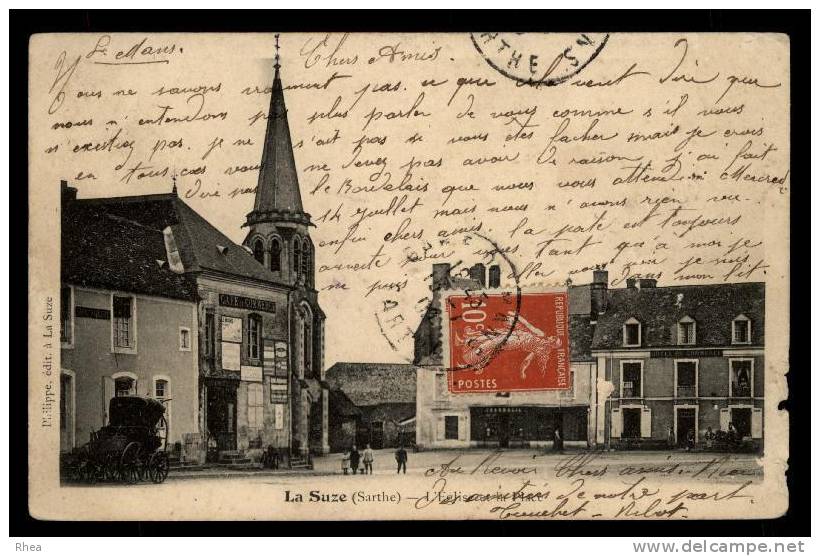 Le Mans.
Chers Amis
Vous ne savons vraiment pas ce que cela veut dire que
nous n'entendons pas plus parler de vous comme s'il vous
n'existiez pas. je ne s'ait pas si vous êtes facher mais je crois
en tous cas vous ne devez pas avoir de raison, j'ai fait
dire par le Bordelais que nous vous attendions Mercredi
14 juillet mais nous n'avons rien vu.
enfin chers amis la porte est toujours
ouverte pour vous tant qu'a moi je
ne puis aller vous voir je suis
dans mon lit.
Au Revoir Chers amis
de notre part
RTHE
POSTES
10c
RÉPUBLIQUE FRANÇAISE
CAFÉ DU COMMERCE
HOTEL DU COMMERCE
PHARMACIE
Philippe, édit. à La Suze
La Suze (Sarthe) — L'Eglise et la Place
Rhea
http://www.delcampe.net